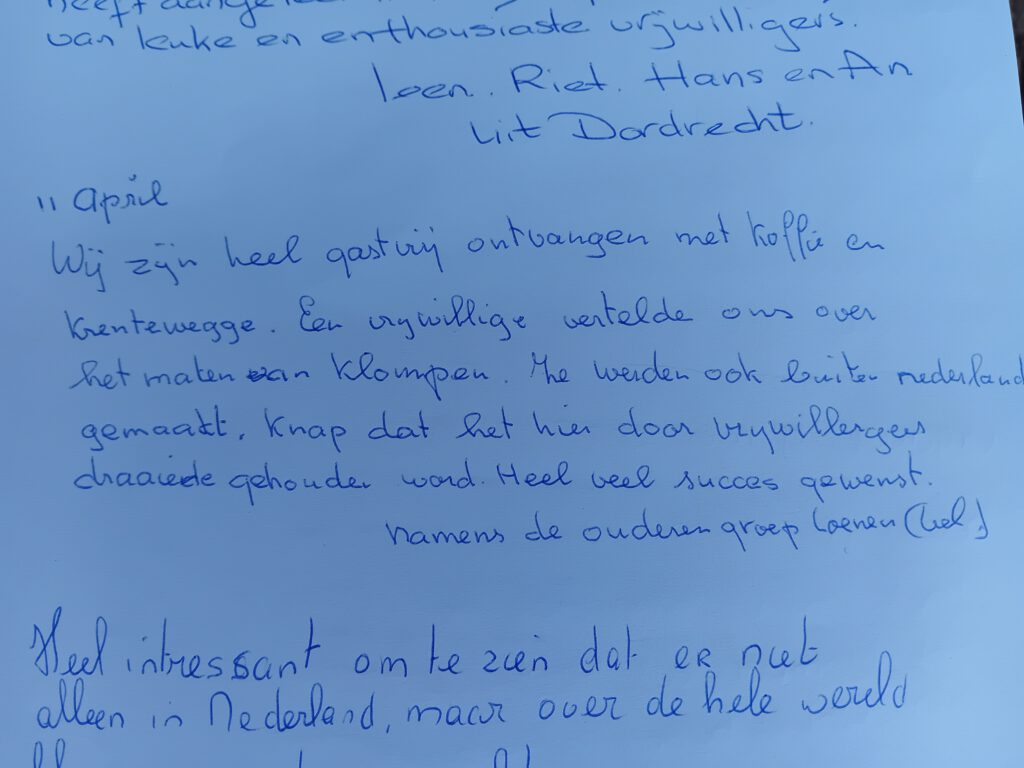 heeft
van leuke en enthousiaste vrijwilligers.
Loen. Riet. Hans en An
uit Dordrecht.
11 april
Wij zijn heel gastvrij ontvangen met koffie en
krentewegge. Een vrywillige vertelde ons over
het maken van klompen. Ze werden ook buiten nederland
gemaakt. Knap dat het hier door vrywillergers
draaiede gehouden word. Heel veel succes gewenst.
namens de ouderen groep Loenen (Vel.)
Heel intressant om te zien dat er niet
alleen in Nederland, maar over de hele wereld